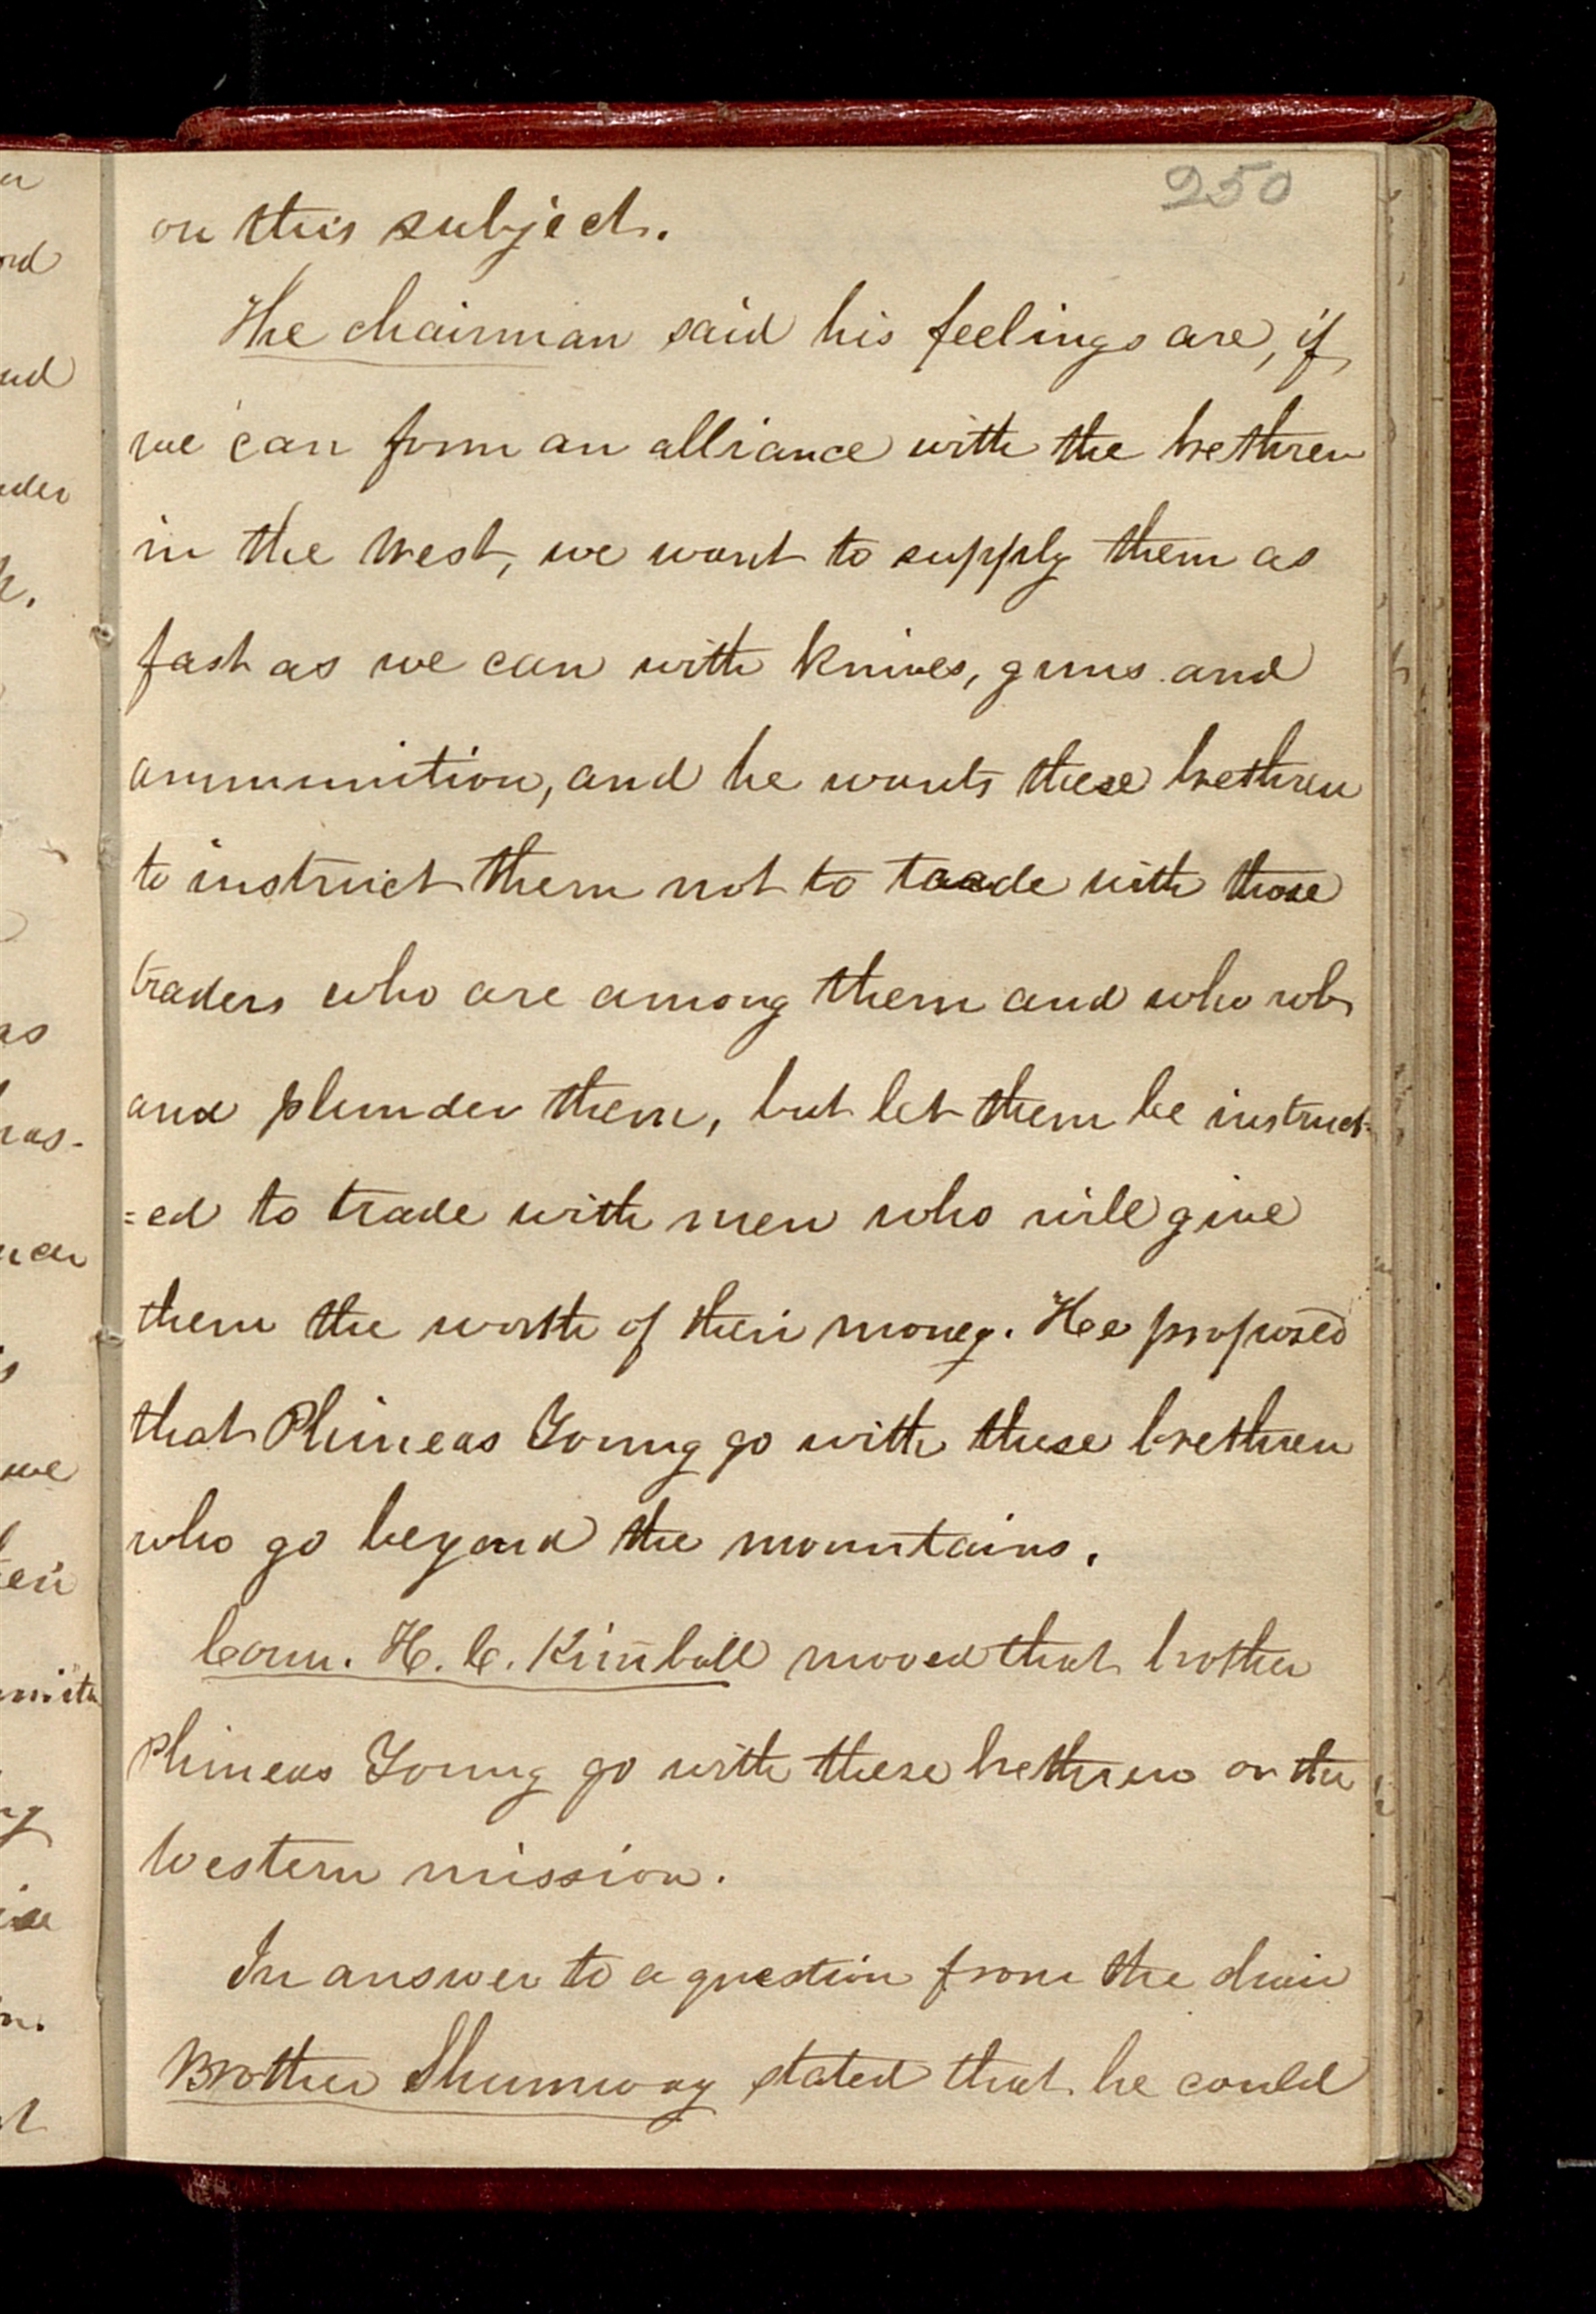 250
on this subject.
The chairman said his feelings are, if
we can form an alliance with the brethren
in the west, we want to supply them as
fast as we can with knives, guns and
ammunition, and he wants these brethren
to instruct them not to taade with those
traders who are among them and who rob
and plunder them, but let them be instruct-
=ed to trade with men who will give
them the worth of their money. He proposed
that Phineas Young go with these brethren
who go beyond the mountains.
Coun. H. C. Kimball moved that brother
Phineas Young go with these brethren on the
Western mission.
In answer to a question from the chair
Brother Shumway stated that he could